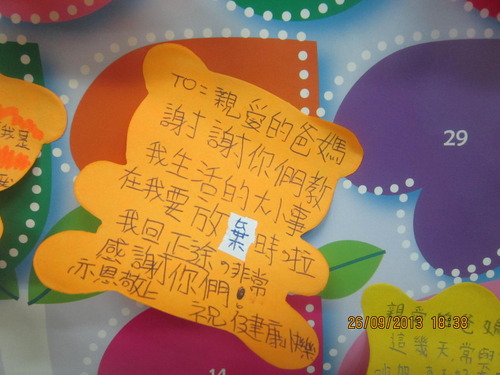 TO:親愛的爸媽
謝謝你們教
我生活的大小事
在我要放棄時拉
我回正途,非常
感謝你們!
亦恩敬上
祝 健康快樂
我是
29
14
親愛的爸媽
這幾天常
26/09/2013 18:38